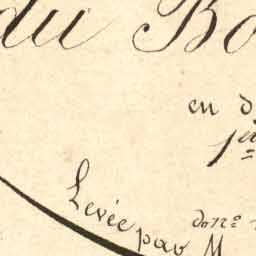 du Bo
en d
Levée
par M